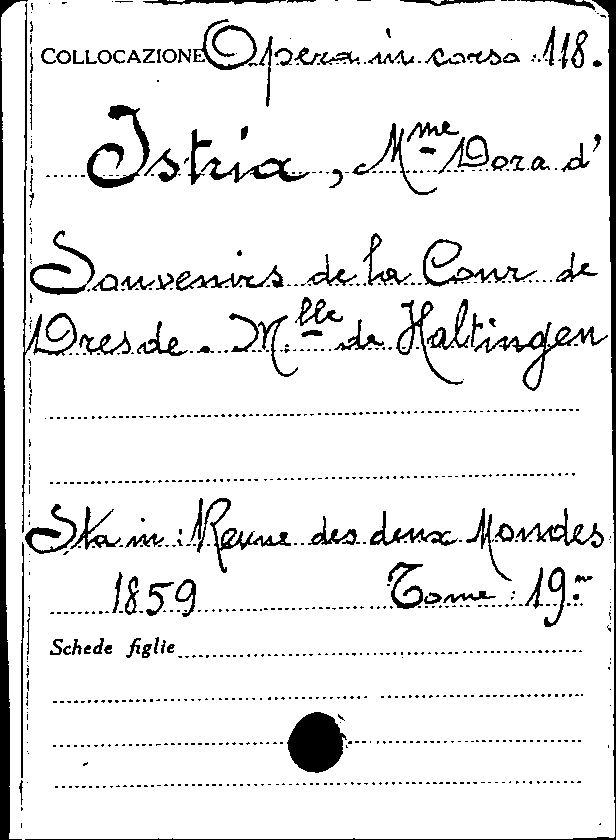 COLLOCAZIONE Opera in corso 118.
Istria, Mme Dora d'
Souvenirs de la Cour de
Dresde. Mlle de Haltingen
Sta in: Revue des deux Mondes
1859 Tome: 19.me
Schede figlie